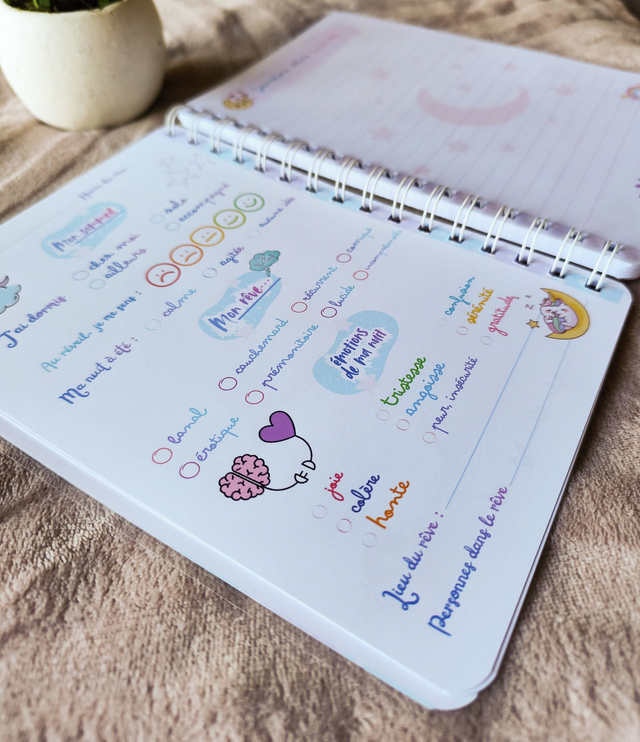 Mon sommeil
J'ai dormi
chez moi
ailleurs
solo
accompagné
Au réveil, je me sens :
Ma nuit a été :
calme
agitée
Mon rêve...
banal
érotique
cauchemard
prémonitoire
récurrent
lucide
comique
émotions
de ma nuit
joie
colère
honte
tristesse
angoisse
peur, insécurité
confusion
sérénité
gratitude
z z z
Lieu du rêve :
Personnes dans le rêve